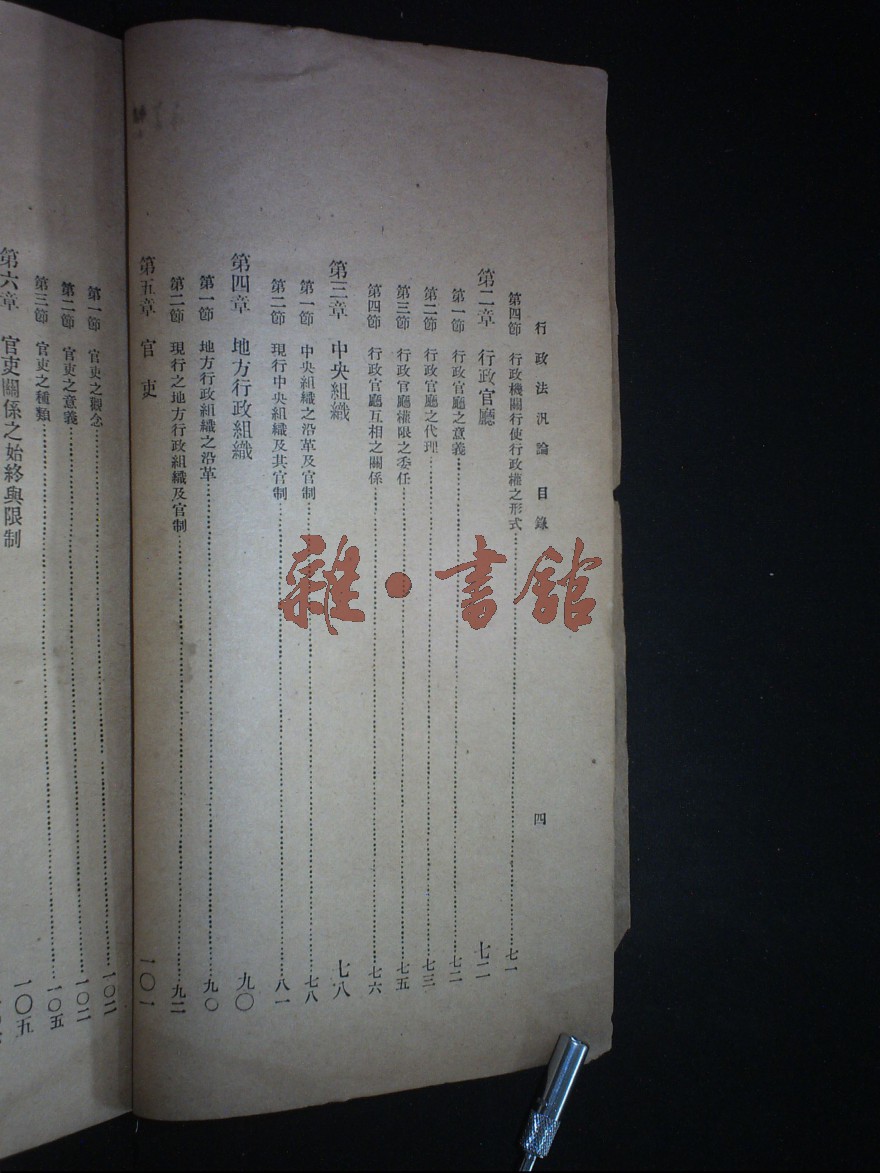 行政法汎論 目錄 四
第四節 行政機關行使行政權之形式……七一
第二章 行政官廳 七二
第一節 行政官廳之意義……七二
第二節 行政官廳之代理……七三
第三節 行政官廳權限之委任……七五
第四節 行政官廳互相之關係……七六
第三章 中央組織 七八
第一節 中央組織之沿革及官制……七八
第二節 現行中央組織及其官制……八一
第四章 地方行政組織 九〇
第一節 地方行政組織之沿革……九〇
第二節 現行之地方行政組織及官制……九二
第五章 官吏 一〇一
第一節 官吏之觀念……一〇二
第二節 官吏之意義……一〇二
第三節 官吏之種類……一〇五
第六章 官吏關係之始終與限制 一〇五
雜·書館